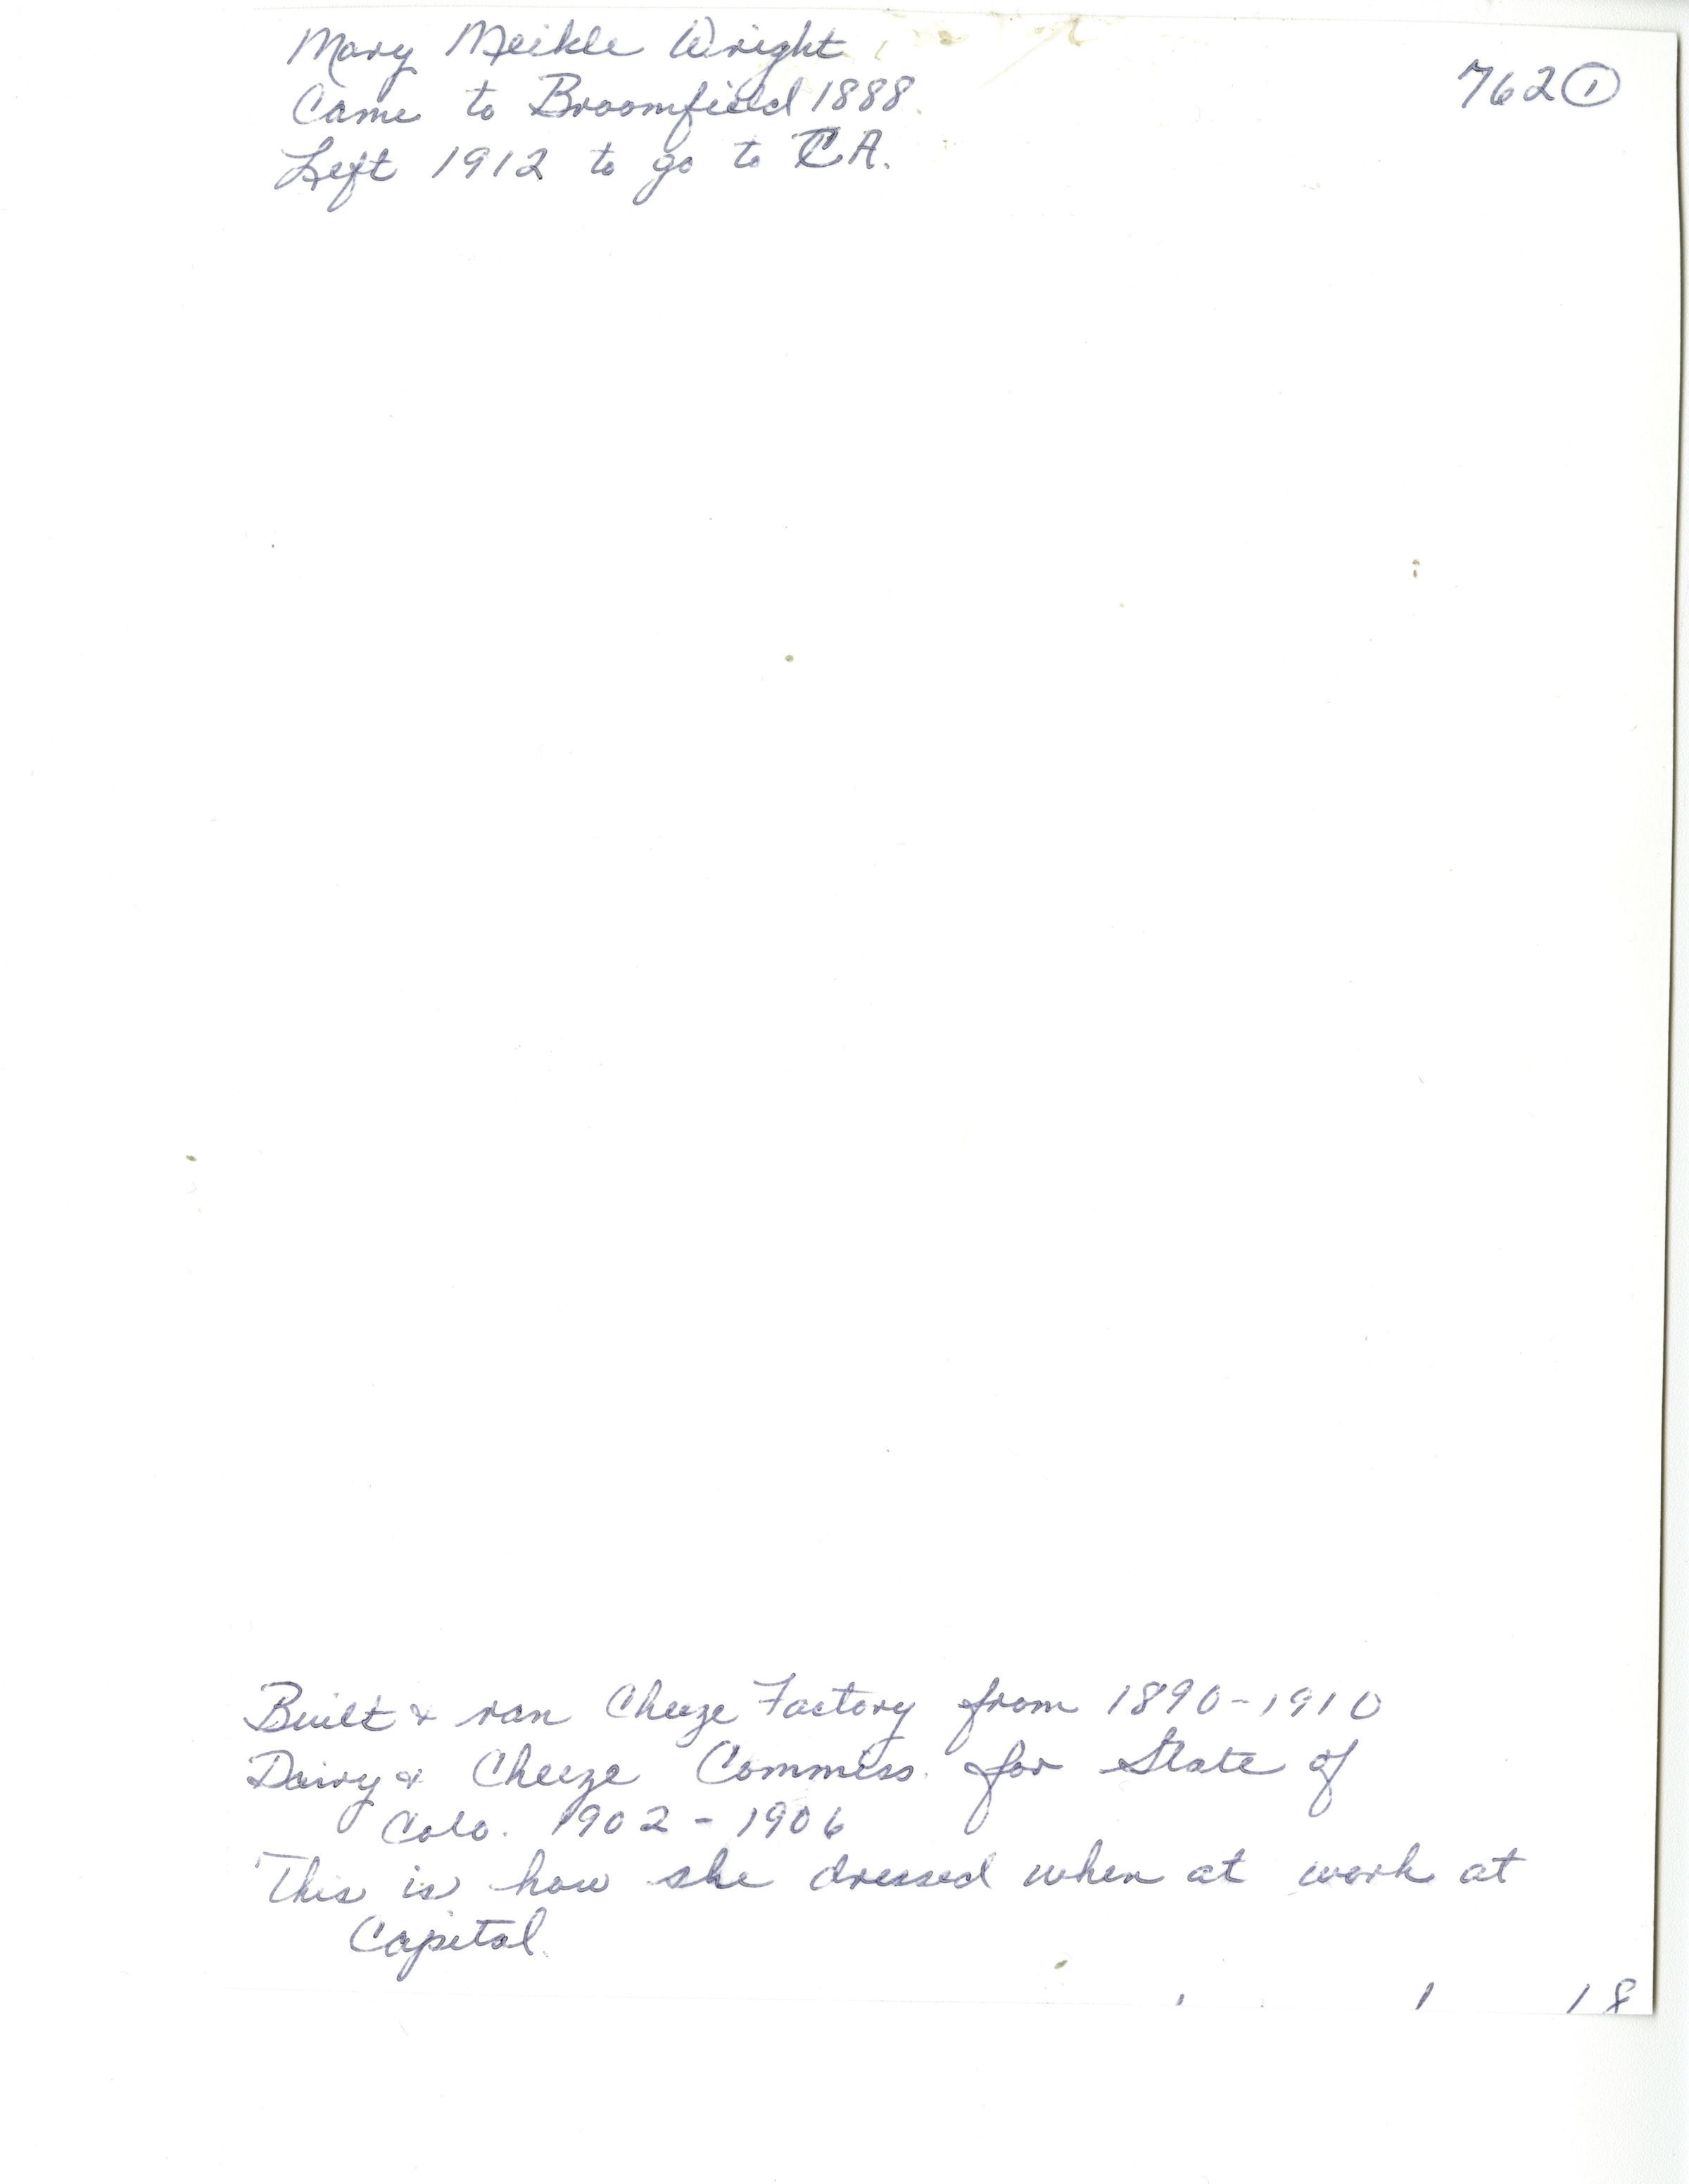 Mary Meikle Wright
762 ①
Came to Broomfield 1888
Left 1912 to go to CA.
Built & ran Cheeze Factory from 1890-1910
Dairy & Cheeze Commiss. for State of
Colo. 1902-1906
This is how she dressed when at work at
Capital.